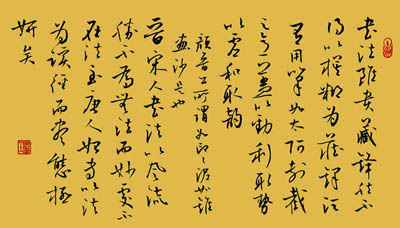 書法雖貴藏鋒然不
得以模糊為藏鋒須
有用筆如太阿剸截
之意蓋以勁利取勢
以虛和取韻
顏魯公所謂如印印泥如錐
畫沙是也
晉宋人書法以風流
勝不為無法而妙處不
在法至唐人始專以法
為蹊徑而盡態極
妍矣